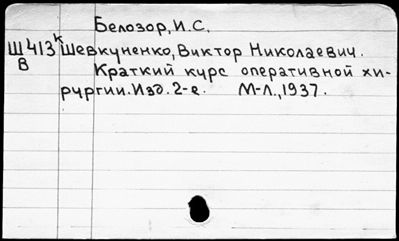 Белозор, И.С.
Ш413к Шевкуненко, Виктор Николаевич.
В
Краткий курс оперативной хи-
рургии. Изд. 2-е. М-Л., 1937.